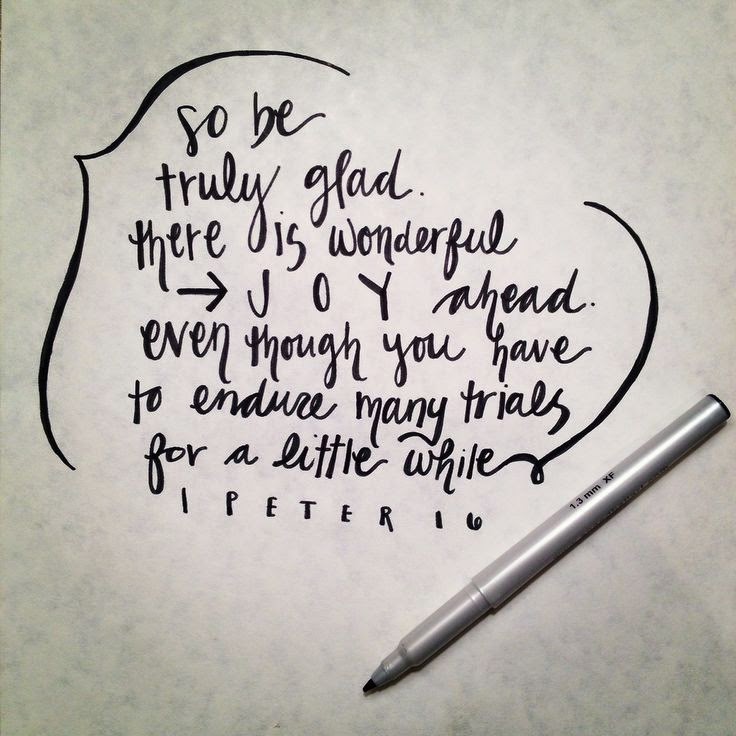 so be
truly glad.
there is wonderful
→ JOY ahead.
even though you have
to endure many trials
for a little while
1 PETER 1 6
1.3 mm XF